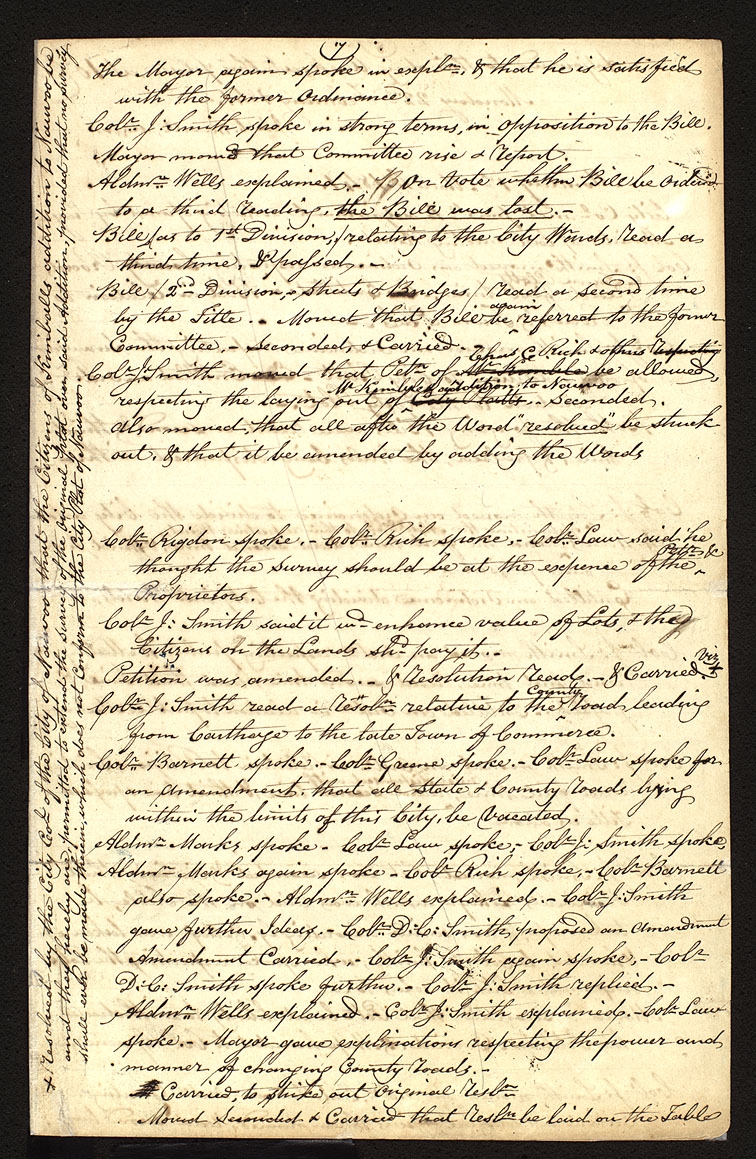 (7)
The Mayor again spoke in expln, & that he is satisfied
with the former Ordinance.
Colr J: Smith spoke in strong terms, in opposition to the Bill.
Mayor moved that Committee rise & Report.
Aldmn Wells explained. - On Vote whether Bill be Ordered
to a third reading, the Bill was lost. -
Bill (as to 1st Division,) relating to the City Wards, read a
third time, & passed. -
Bill (2nd Division, - Streets & Bridges) read a second time
by the Title. - Moved that Bill again be referred to the former
Committee, - Seconded & Carried.
Colr J: Smith moved that Petn of Chas C. Rich & others respecting Mr Kimble be allowed,
respecting the laying out of City Platts Mr Kimballs addition to Nauvoo. - Seconded.
Also moved, that all after the Word "resolved" be struck
out, & that it be amended by adding the Words
Colr Rigdon spoke. - Colr Rich spoke. - Colr Law said he
thought the Survey should be at the expence of the Petrs &
Proprietors.
Colr J: Smith said it wd enhance value of Lots, & the
Citizens on the Lands shd pay it. -
Petition was amended. - & Resolution Read. - & Carried. Viz +
Colr J: Smith read a Resoln relative to the County road leading
from Carthage to the late Town of Commerce.
Colr Barnett spoke. - Colr Greene spoke. - Colr Law spoke for
an amendment; that all State & County roads lying
within the limits of this City, be vacated.
Aldmn Marks spoke - Colr Law spoke; - Colr J: Smith spoke,
Aldmn Marks again spoke - Colr Rich spoke, - Colr Barnett
also spoke. - Aldmn Wells explained. - Colr J: Smith
gave further Ideas. - Colr D: C: Smith, proposed an amendment
Amendment Carried. - Colr J: Smith again spoke, - Colr
D: C: Smith spoke further. - Colr J: Smith replied. -
Aldmn Wells explained. - Colr J: Smith explained. - Colr Law
spoke. - Mayor gave explinations respecting the power and
manner of changing County roads. -
Carried, to strike out Original Resln
Moved Seconded & Carried that Resln be laid on the Table
+ Resolved by the City Col of the City of Nauvoo that the Citizens of Kimballs addition to Nauvoo be
and they hereby are permitted to extend the survey of the Original Platt over said Addition, provided that no survey
shall ever be made therein, which does not Conform to the City Plat of Nauvoo.